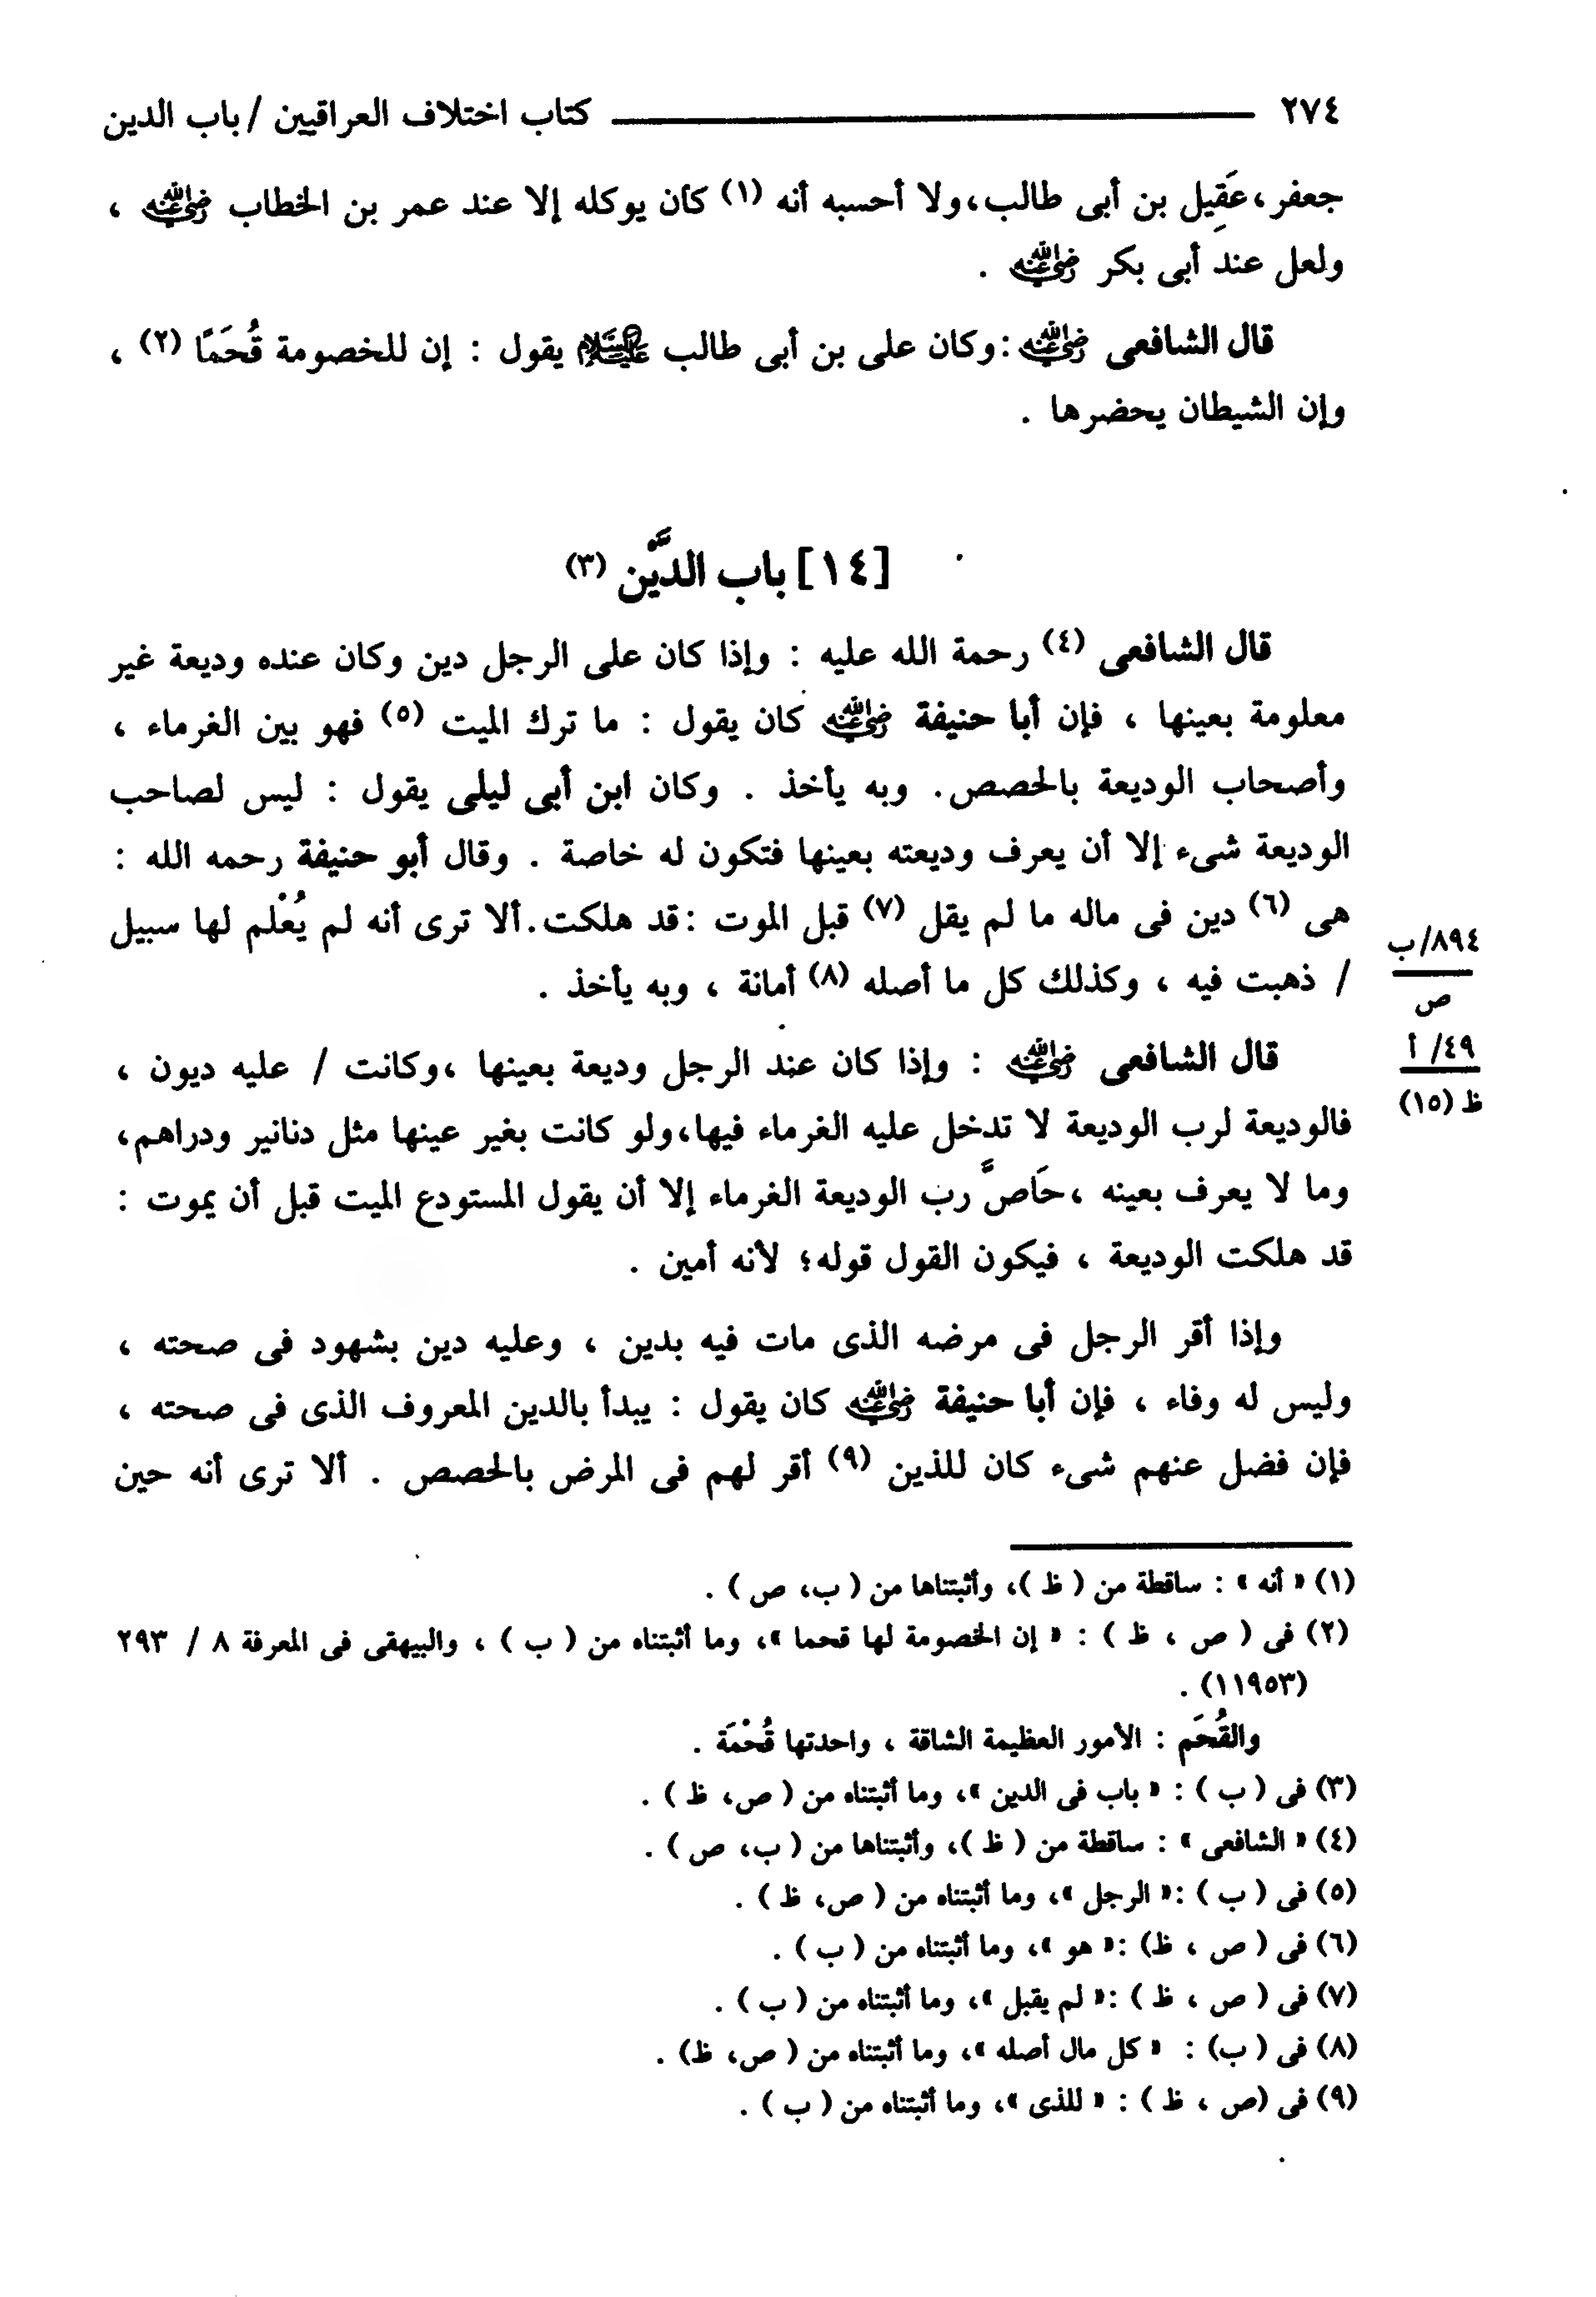 ٢٧٤ ــــــ كتاب اختلاف العراقيين / باب الدين
جعفر، عَقِيل بن أبى طالب، ولا أحسبه أنه (١) كان يوكله إلا عند عمر بن الخطاب رضي الله عنه ،
ولعل عند أبى بكر رضي الله عنه .
قال الشافعى رضي الله عنه : وكان على بن أبى طالب عليه السلام يقول : إن للخصومة قُحَمًا (٢) ،
وإن الشيطان يحضرها .
[١٤] باب الدَّيْن (٣)
قال الشافعى (٤) رحمة الله عليه : وإذا كان على الرجل دين وكان عنده وديعة غير
معلومة بعينها ، فإن أبا حنيفة رضي الله عنه كان يقول : ما ترك الميت (٥) فهو بين الغرماء ،
وأصحاب الوديعة بالحصص. وبه يأخذ . وكان ابن أبى ليلى يقول : ليس لصاحب
الوديعة شىء إلا أن يعرف وديعته بعينها فتكون له خاصة . وقال أبو حنيفة رحمه الله :
هى (٦) دين فى ماله ما لم يقل (٧) قبل الموت : قد هلكت. ألا ترى أنه لم يُعْلم لها سبيل
٨٩٤/ب
/ ذهبت فيه ، وكذلك كل ما أصله (٨) أمانة ، وبه يأخذ .
ص
قال الشافعى رضي الله عنه : وإذا كان عند الرجل وديعة بعينها ،وكانت / عليه ديون ،
٤٩/ أ
ظ (١٥)
فالوديعة لرب الوديعة لا تدخل عليه الغرماء فيها،ولو كانت بغير عينها مثل دنانير ودراهم،
وما لا يعرف بعينه ،حَاصَّ رب الوديعة الغرماء إلا أن يقول المستودع الميت قبل أن يموت :
قد هلكت الوديعة ، فيكون القول قوله؛ لأنه أمين .
وإذا أقر الرجل فى مرضه الذى مات فيه بدين ، وعليه دين بشهود فى صحته ،
وليس له وفاء ، فإن أبا حنيفة رضي الله عنه كان يقول : يبدأ بالدين المعروف الذى فى صحته ،
فإن فضل عنهم شىء كان للذين (٩) أقر لهم فى المرض بالحصص . ألا ترى أنه حين
(١) « أنه » : ساقطة من ( ظ )، وأثبتناها من ( ب، ص ) .
(٢) فى ( ص ، ظ ) : « إن الخصومة لها قحما »، وما أثبتناه من ( ب ) ، والبيهقى فى المعرفة ٨ / ٢٩٣
(١١٩٥٣) .
والقُحَم : الأمور العظيمة الشاقة ، واحدتها قُحْمَة .
(٣) فى ( ب ) : « باب فى الدين »، وما أثبتناه من ( ص، ظ ) .
(٤) « الشافعى » : ساقطة من ( ظ )، وأثبتناها من ( ب، ص ) .
(٥) فى ( ب ) :« الرجل »، وما أثبتناه من ( ص، ظ ) .
(٦) فى ( ص ، ظ) :« هو »، وما أثبتناه من ( ب ) .
(٧) فى ( ص ، ظ ) :« لم يقبل »، وما أثبتناه من ( ب ) .
(٨) فى ( ب) : « كل مال أصله »، وما أثبتناه من ( ص، ظ) .
(٩) فى (ص ، ظ ) : « للذى »، وما أثبتناه من ( ب ) .